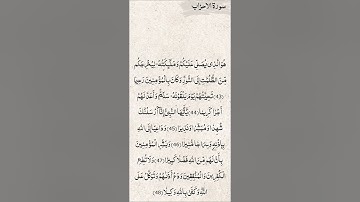 سورة الاحزاب
هُوَ الَّذِي يُصَلِّي عَلَيْكُمْ وَمَلَٰٓئِكَتُهُ لِيُخْرِجَكُم
مِّنَ الظُّلُمَٰتِ إِلَى النُّورِ وَكَانَ بِالْمُؤْمِنِينَ رَحِيمًا
(43) تَحِيَّتُهُمْ يَوْمَ يَلْقَوْنَهُ سَلَٰمٌ وَأَعَدَّ لَهُمْ
أَجْرًا كَرِيمًا (44) يَٰٓأَيُّهَا النَّبِيُّ إِنَّآ أَرْسَلْنَٰكَ
شَٰهِدًا وَمُبَشِّرًا وَنَذِيرًا (45) وَدَاعِيًا إِلَى اللَّهِ
بِإِذْنِهِ وَسِرَاجًا مُّنِيرًا (46) وَبَشِّرِ الْمُؤْمِنِينَ
بِأَنَّ لَهُم مِّنَ اللَّهِ فَضْلًا كَبِيرًا (47) وَلَا تُطِعِ
الْكَٰفِرِينَ وَالْمُنَٰفِقِينَ وَدَعْ أَذَىٰهُمْ وَتَوَكَّلْ عَلَى
اللَّهِ وَكَفَىٰ بِاللَّهِ وَكِيلًا (48)